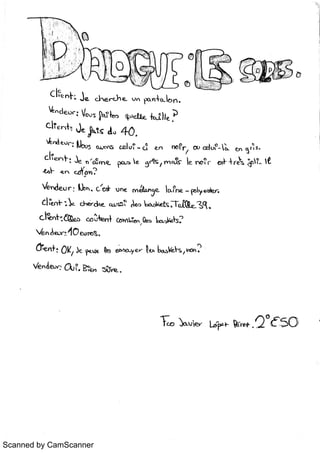 DIALOGUE: LES SOLDES.
Client: Je cherche un pantalon.
Vendeur: Vous faîtes quelle taille?
Client: Je fais du 40.
Vendeur: Nous avons celui-ci en noir, ou celui-là en gris.
Client: Je n'aime pas le gris, mais le noir est très joli. Il
est en coton?
Vendeur: Non. C'est une mélange laine-polyester.
Client: Je cherche aussi des baskets. Taille 39.
Client: Elles coûtent combien, les baskets?
Vendeur: 10 euros.
Client: OK, Je peux les essayer les baskets, non?
Vendeur: Oui. Bien sûre.
Fco Javier López 2º ESO
Scanned by CamScanner